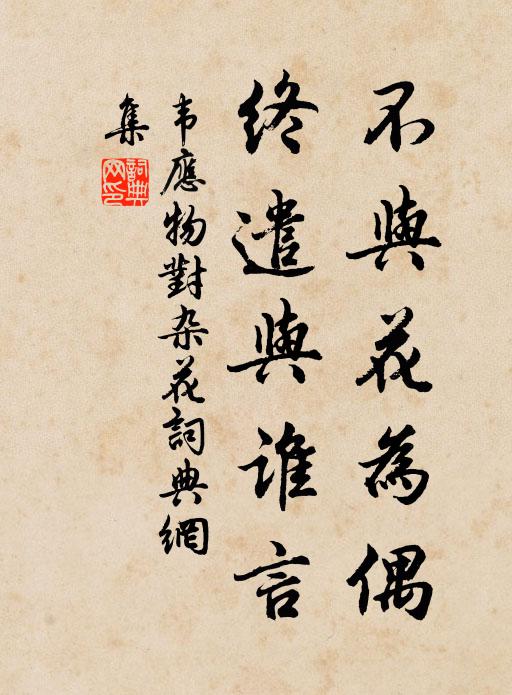 不與花為偶
終遣與誰言
韦應物對杂花詞典網
集
詞典
网印